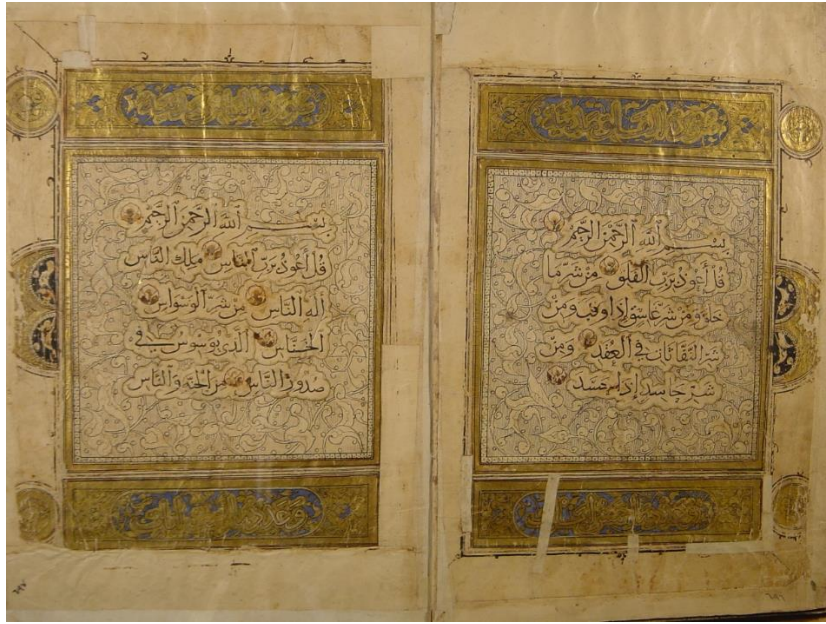 بسم الله الرحمن الرحيم
قل أعوذ برب الفلق من شر ما
خلق ومن شر غاسق إذا وقب ومن
شر النفاثات في العقد ومن
شر حاسد إذا حسد
بسم الله الرحمن الرحيم
قل أعوذ برب الناس ملك الناس
إله الناس من شر الوسواس
الخناس الذي يوسوس في
صدور الناس من الجنة والناس